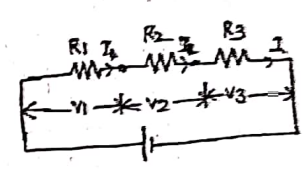 R1 I1 R2 I2 R3 I
V1 V2 V3